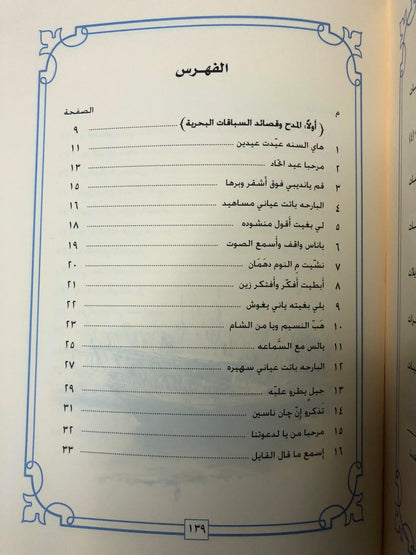 الفهرس
م الصفحة
( أولاً: المدح وقصائد السباقات البحرية ) ٩
١ هاي السنه عيّدت عيدين ١١
٢ مرحبا عيد اتحاد ١٣
٣ قم يانديبي فوق أشقر وبرها ١٥
٤ البارحه باتت عياني مساهيد ١٦
٥ لي بغيت أقول منشوده ١٨
٦ ياناس واقف وأسمع الصوت ١٩
٧ نشّيت م النوم دهمان ٢٠
٨ أبطيت أفكّر وأفتكر زين ٢١
٩ يلي بغيته ياني يغوش ٢٢
١٠ هبّ النسيم ويا من الشام ٢٣
١١ يالس مع السّماعه ٢٥
١٢ البارحه باتت عياني سهيره ٢٧
١٣ جيل يطرو عليّه ٢٩
١٤ تذكرو إنْ چان ناسين ٣١
١٥ مرحبا من يا لدعوتنا
١٦ إسمع ما قال القايل ٣٣
١٣٩